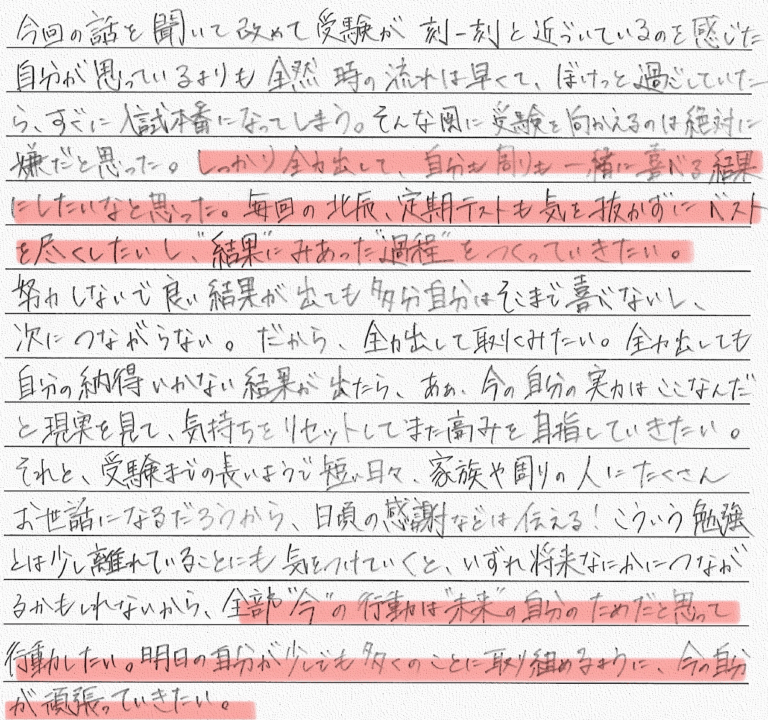 今回の話を聞いて改めて受験が刻一刻と近づいているのを感じた
自分が思っているよりも全然時の流れは早くて、ぼけっと過ごしていた
ら、すぐに入試本番になってしまう。そんな風に受験を向かえるのは絶対に
嫌だと思った。しっかり全力出して、自分も周りも一緒に喜べる結果
にしたいなと思った。毎回の北辰、定期テストも気を抜かずにベスト
を尽くしたいし、"結果"にみあった"過程"をつくっていきたい。
努力しないで良い結果が出ても多分自分はそこまで喜べないし、
次につながらない。だから、全力出して取りくみたい。全力出しても
自分の納得いかない結果が出たら、あぁ、今の自分の実力はここなんだ
と現実を見て、気持ちをリセットしてまた高みを目指していきたい。
それと、受験までの長いようで短い日々、家族や周りの人にたくさん
お世話になるだろうから、日頃の感謝などは伝える!こういう勉強
とは少し離れていることにも気をつけていくと、いずれ将来なにかにつなが
るかもしれないから、全部"今"の行動は"未来"の自分のためだと思って
行動したい。明日の自分が少しでも多くのことに取り組めるように、今の自分
が頑張っていきたい。